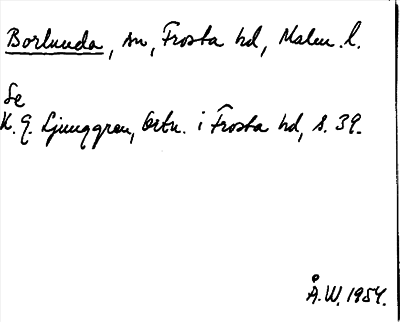 Borlunda, sn, Frosta hd, Malm. l.
Se
K. G. Ljunggren, Ortn. i Frosta hd, s. 39.
Å. W. 1954.